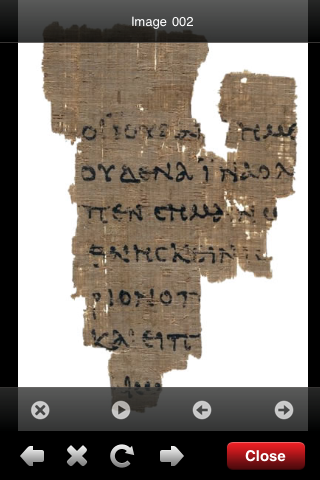 Image 002
ΟΙ ΙΟΥΔΑΙ ΗΜΕ
ΟΥΔΕΝΑ ΙΝΑ Ο Λ
ΠΕΝ CΗΜΑΙΝΩ
ΘΝΗCΚΕΙΝ
ΡΙΟΝ Ο Π
ΚΑΙ ΕΙΠ
Close